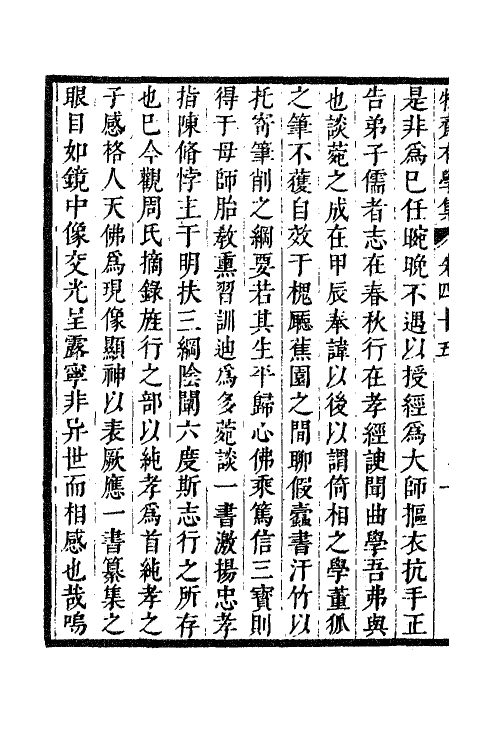 牧齋有學集 卷四十五 一
是非爲已任晼晚不遇以授經爲大師摳衣抗手正
告弟子儒者志在春秋行在孝經諛聞曲學吾弗與
也談菀之成在甲辰奉諱以後以謂倚相之學董狐
之筆不獲自效于槐廳蕉園之間聊假蠹書汗竹以
托寄筆削之綱要若其生平歸心佛乘篤信三寶則
得于母師胎教熏習訓迪爲多菀談一書激揚忠孝
指陳脩悖主于明扶三綱陰闡六度斯志行之所存
也已今觀周氏摘錄旌行之部以純孝爲首純孝之
子感格人天佛爲現像顯神以表厥應一書纂集之
眼目如鏡中像交光呈露寧非异世而相感也哉嗚